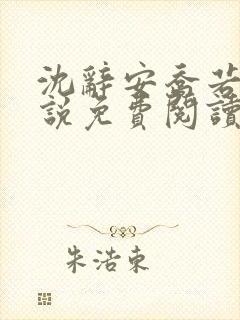 沈辭安喬若
說免費閱讀
朱浩東